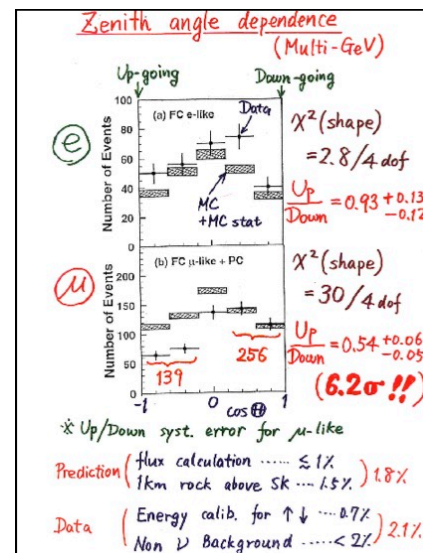 Zenith angle dependence
(Multi-GeV)
Up-going
Down-going
e
Number of Events
100
80
60
40
20
0
(a) FC e-like
Data
MC
+MC stat
χ² (shape)
= 2.8/4 dof
Up/Down = 0.93 +0.13 -0.12
μ
Number of Events
200
150
100
50
0
(b) FC μ-like + PC
139
256
-1
0
1
cos Θ
χ² (shape)
= 30/4 dof
Up/Down = 0.54 +0.06 -0.05
(6.2σ !!)
※ Up/Down syst. error for μ-like
Prediction ( flux calculation ...... ≲ 1%
1km rock above SK .... 1.5% ) 1.8%
Data ( Energy calib. for ↑↓ .... 0.7%
Non ν Background ...... < 2% ) 2.1%